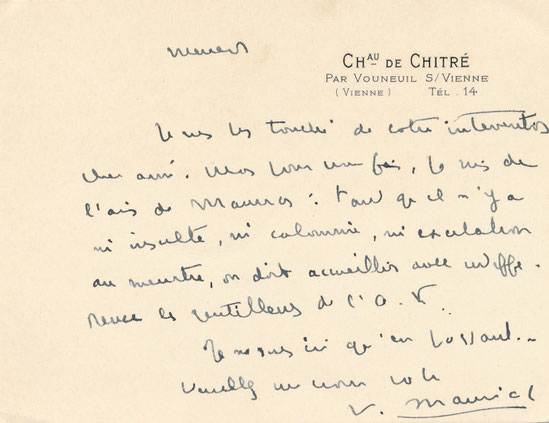 mercredi
CHAU DE CHITRÉ
PAR VOUNEUIL S/VIENNE
(VIENNE) TÉL. 14
Je suis très touché de votre intervention
cher ami. Mais pour une fois, je suis de
l'avis de Maurras : tant qu'il n'y a
ni insulte, ni calomnie, ni excitation
au meurtre, on doit accueillir avec indiffé-
rence les gentillesses de l'A. F.
Je ne suis ici qu'en passant.
Veuillez me croire vôtre
Mauriac